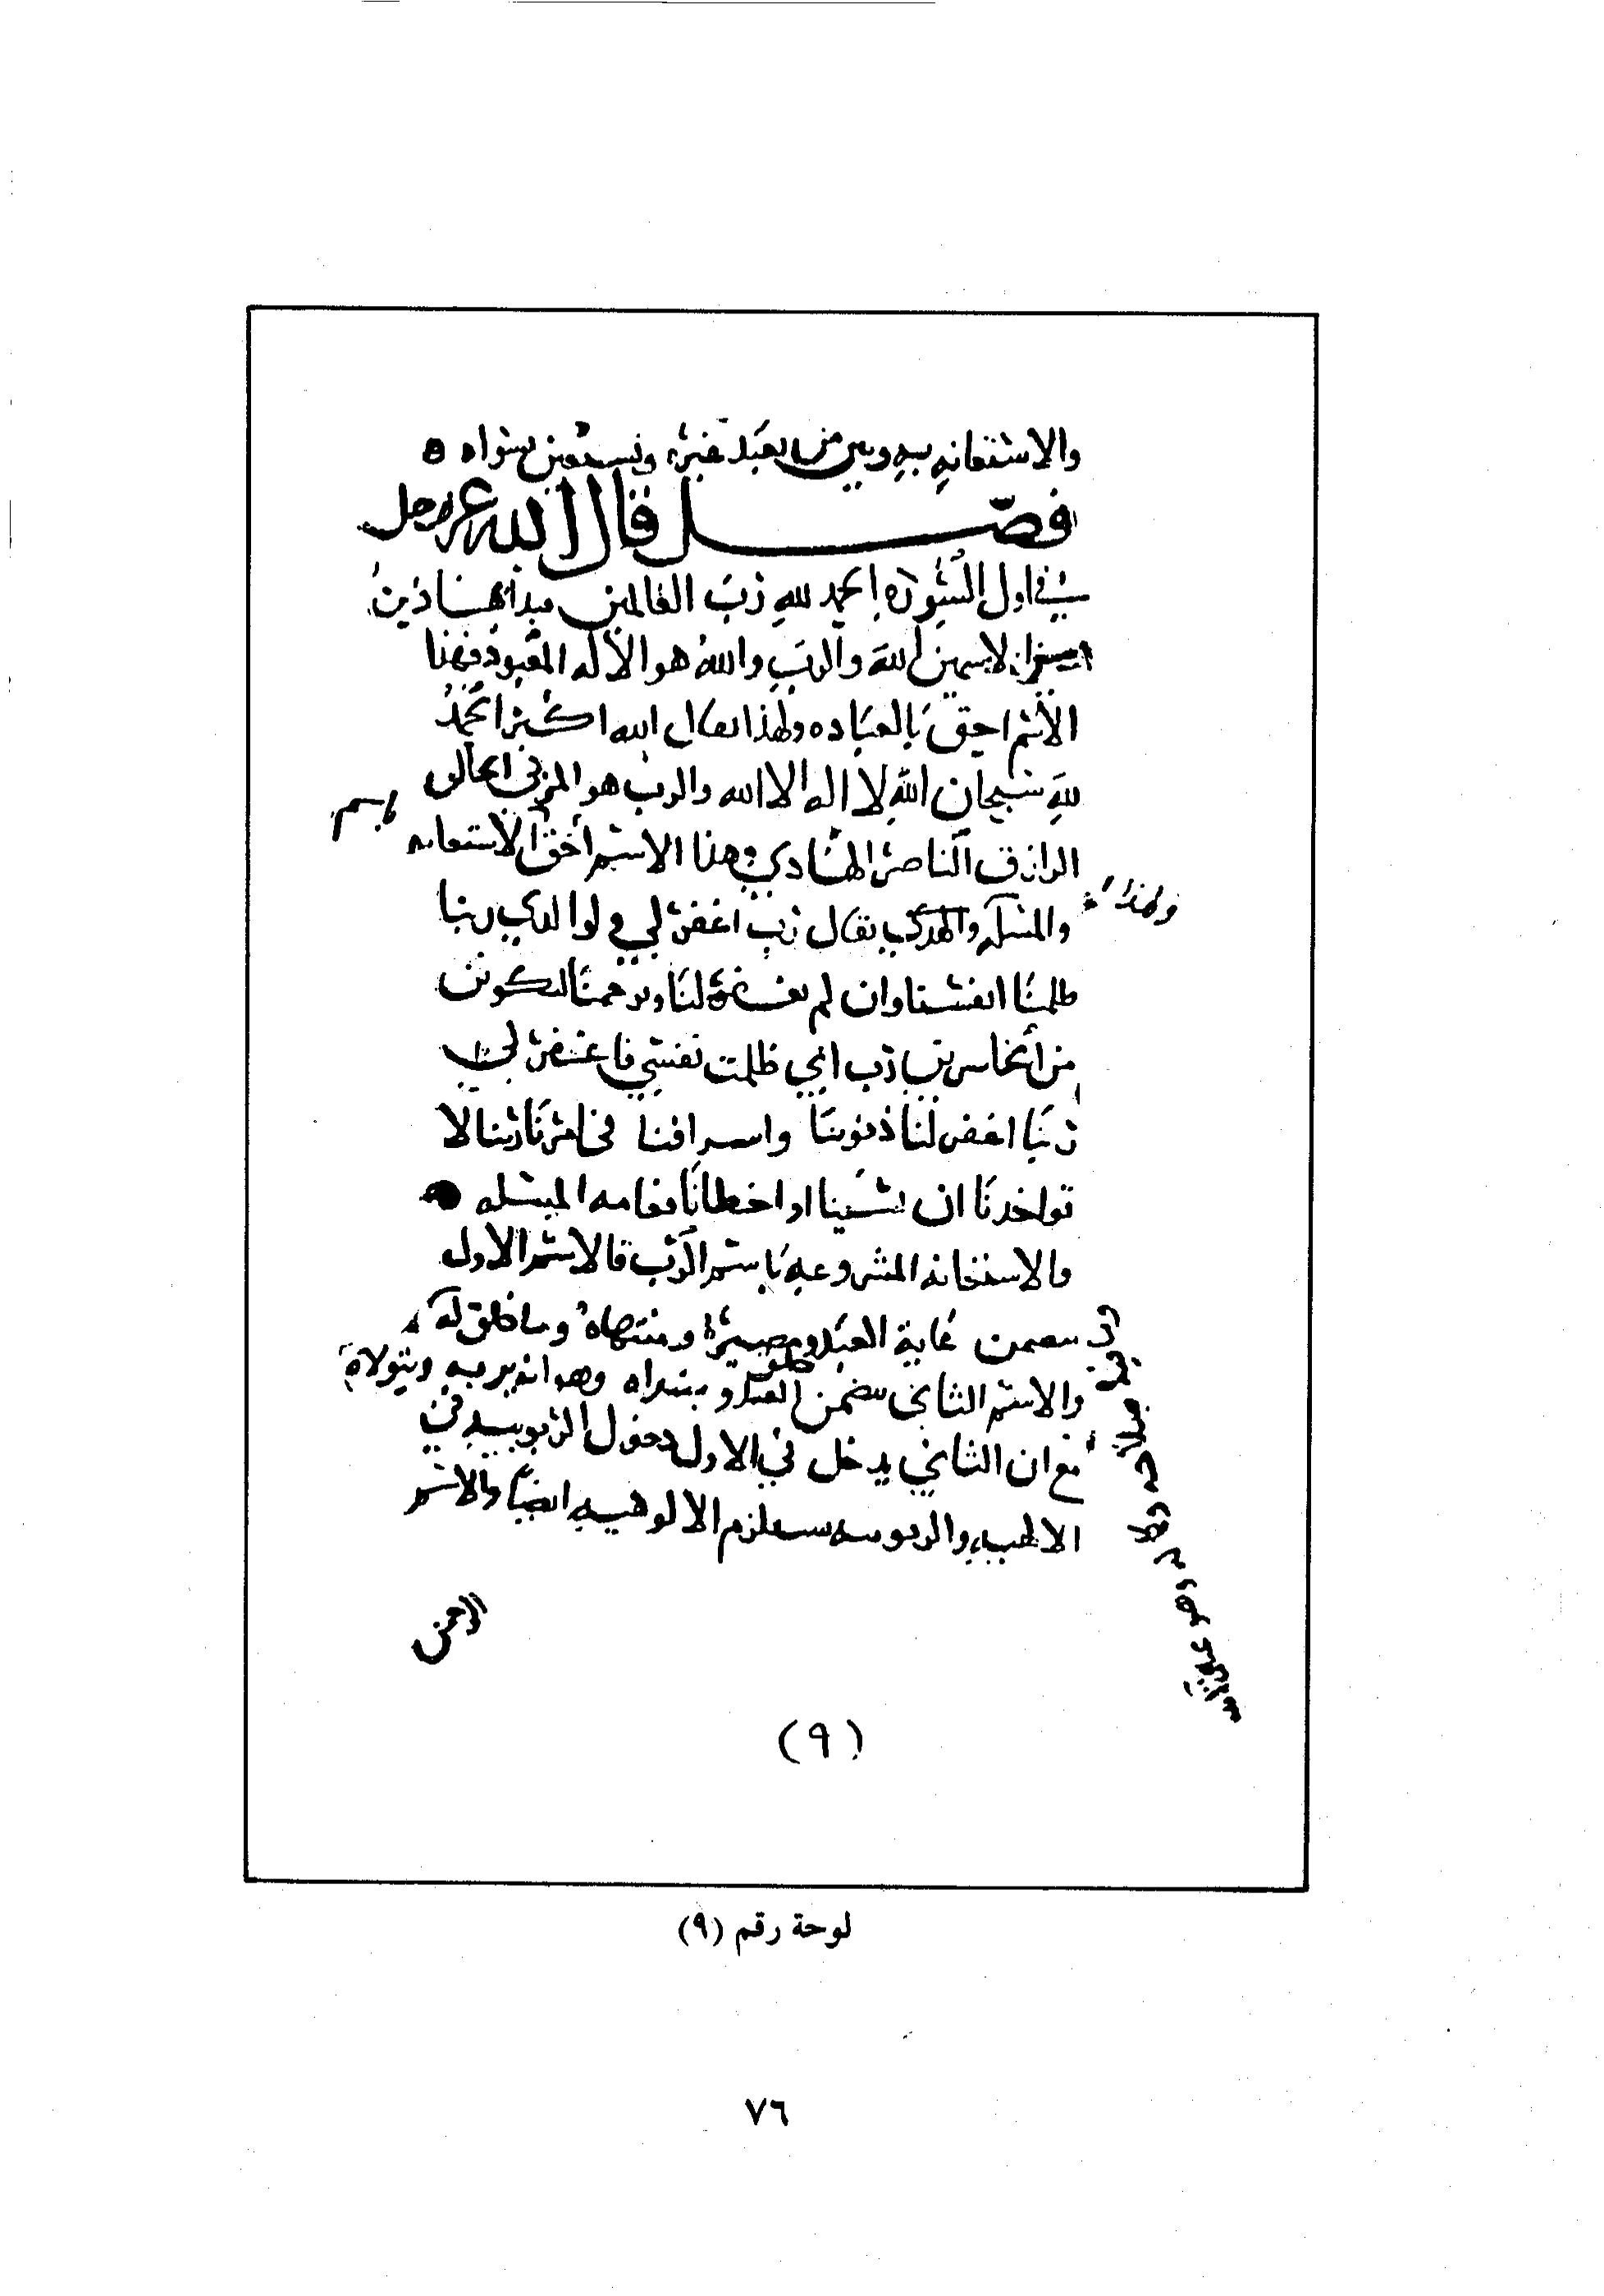 والاستعانه به وبين من يعبد غيره ونستعين بسواه ه
فصل قال الله عز وجل
في اول السوره الحمد لله رب العالمين فبدا بهاذين
الاسمين الله والرب والله هو الاله المعبود فهذا
الاسم احق بالعباده ولهذا يقال الله اكبر الحمد
لله سبحان الله لا اله الا الله والرب هو المربي الخالق
الرازق الناصر الهادي وهذا الاسم احق الاستعانه
باسم
ولهذا
والمسله يقال رب اغفر لي ولوالدي ربنا
ظلمنا انفسنا وان لم تغفر لنا وترحمنا لنكونن
من الخاسرين رب اني ظلمت نفسي فاغفر لي
ربنا اغفر لنا ذنوبنا واسرافنا في امرنا ربنا لا
تواخدنا ان نسينا او اخطانا فعامه المسله
والاستعانه المشروعه باسم الرب فالاسم الاول
يتضمن غاية العبد ومصيره ومنتهاه وما خلق له
والاسم الثاني يتضمن خلق العبد ومبتداه وهو انه يربه ويتولاه
مع ان الثاني يدخل في الاول دخول الربوبيه في
الالهيه والربوبيه تستلزم الالوهيه ايضا والاسم
الرحمن
(٩)
لوحة رقم (٩)
٧٦